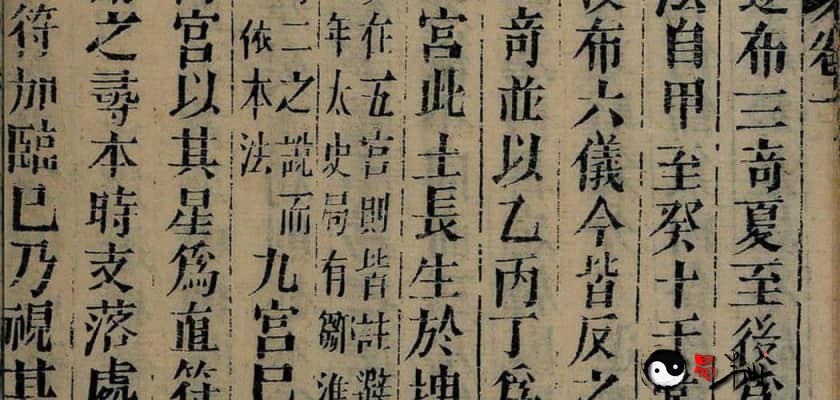 卷一
布三竒夏至後
法自甲至癸十干
布六儀今皆反之
竒並以乙丙丁爲
宮此土長生於坤
在五宮則皆註避
年太史局有鄒淮
二之說而
依本法
九宮巳
宮以其星爲直符
之尋本時支落處
符加臨巳乃視其
易